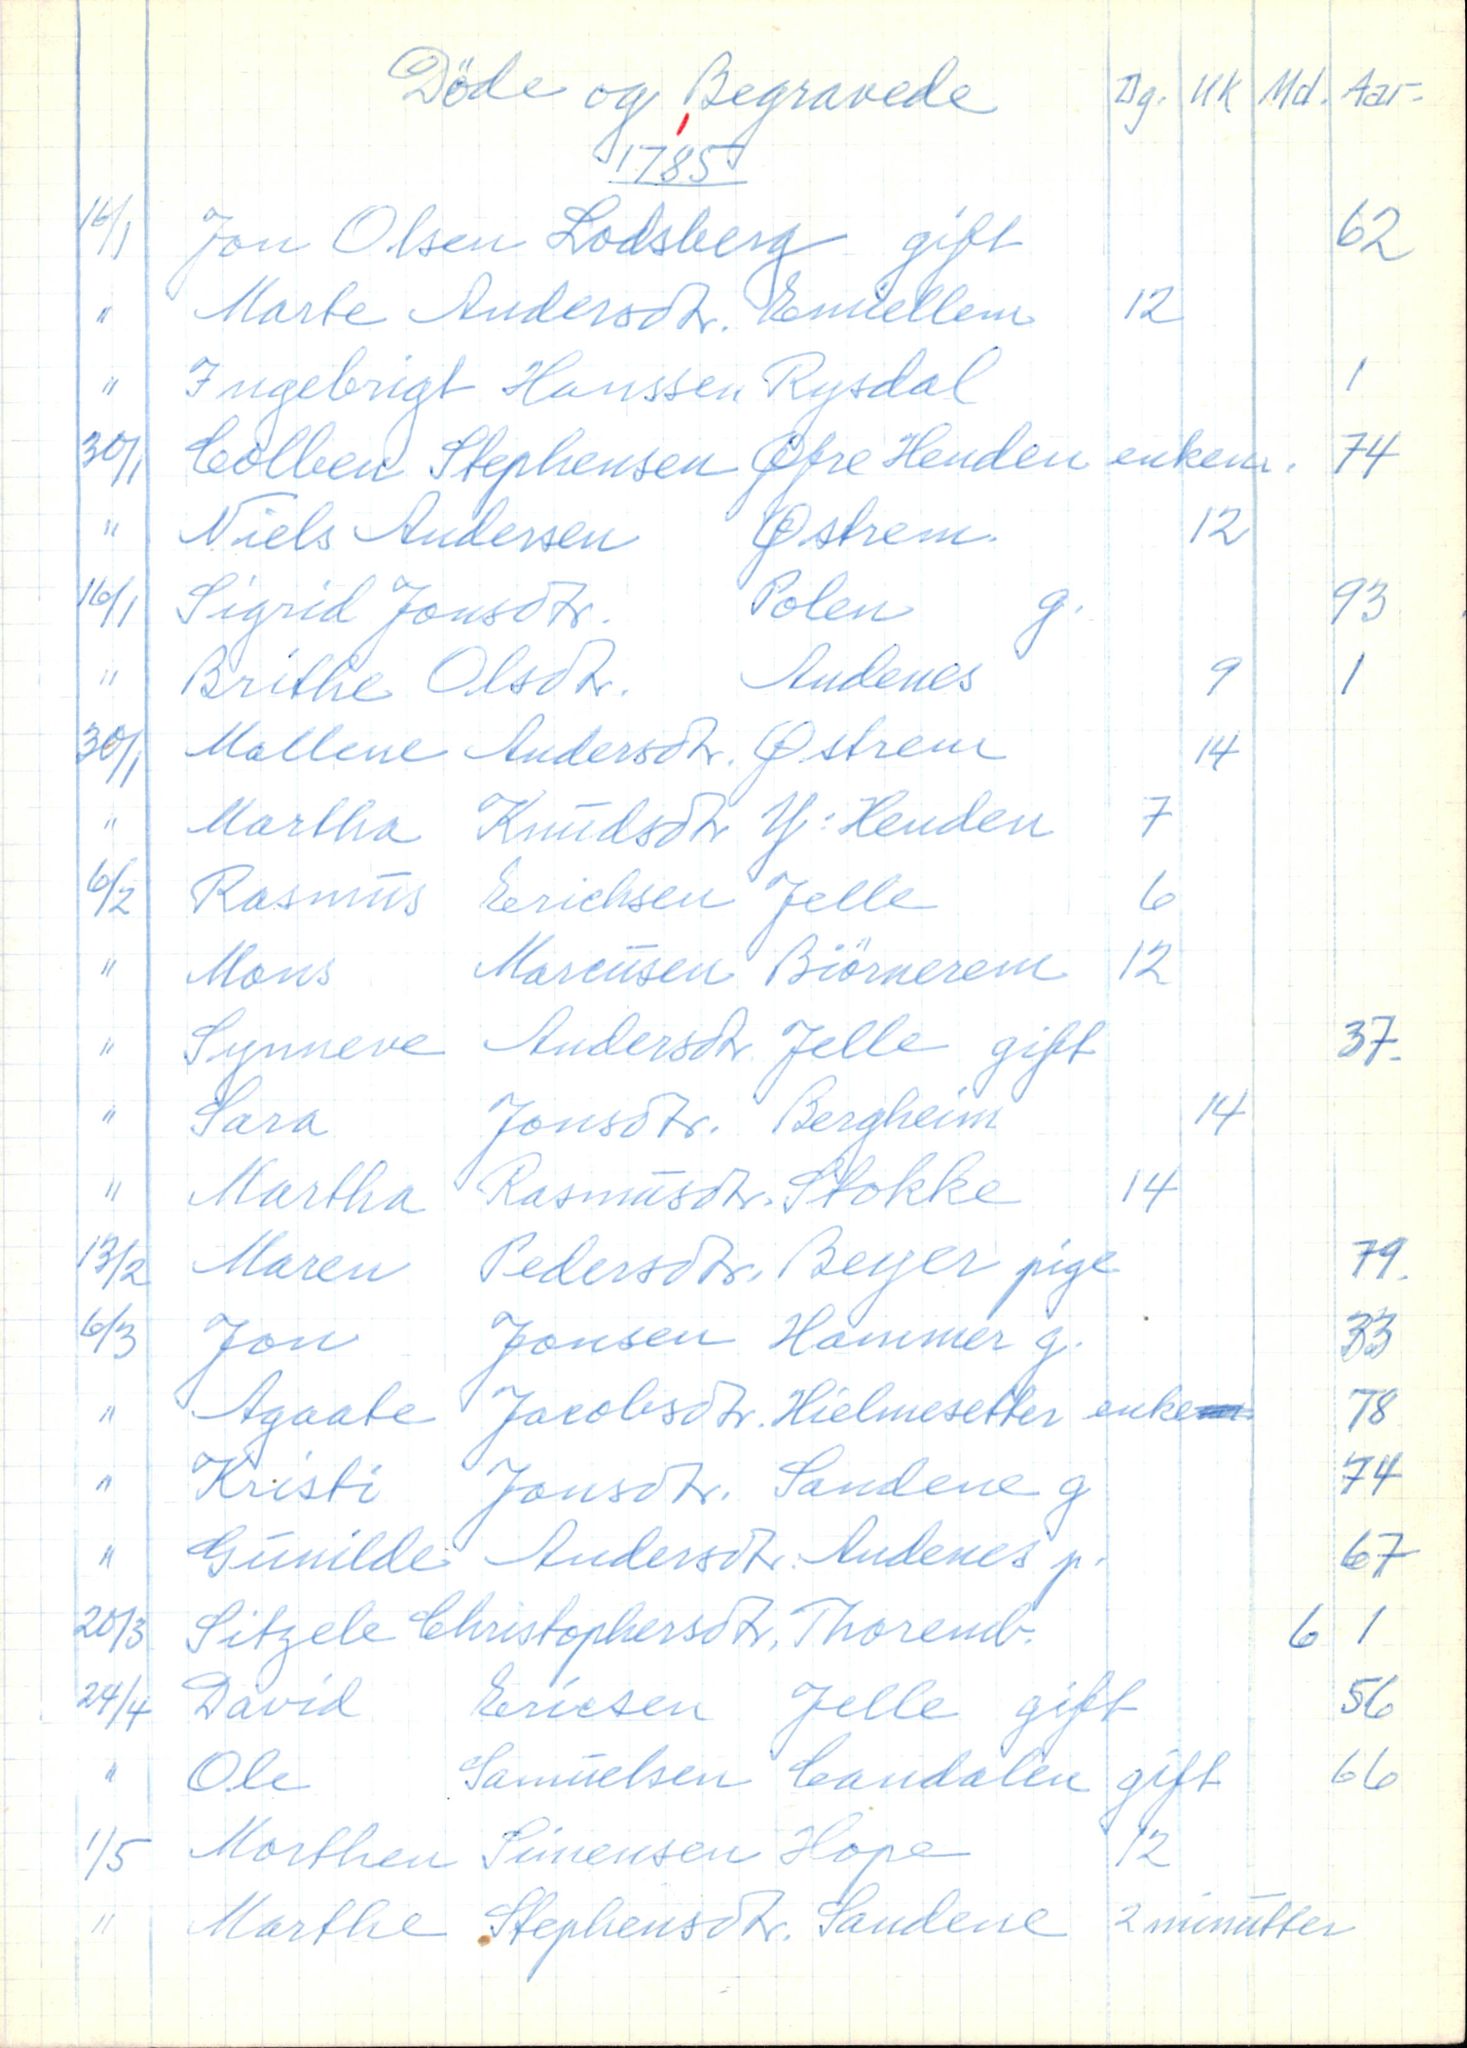 Döde og Begravede Dg. UK Md. Aar
1785
16/1 Jon Olsen Lodsberg gift 62
" Marte Andersdtr. Emiellem 12
" Ingebrigt Hanssen Rysdal 1
30/1 Colben Stephensen Øfre Henden enkem. 74
" Niels Andersen Østrem. 12
16/1 Sigrid Jonsdtr. Polen g. 93
" Brithe Olsdtr. Andenes 9 1
30/1 Mallene Andersdtr. Østrem 14
" Martha Knudsdtr Y: Henden 7
6/2 Rasmus Erichsen Jelle 6
" Mons Marcusen Biörnerem 12
" Synneve Andersdtr. Jelle gift 37.
" Sara Jonsdtr. Bergheim 14
" Martha Rasmusdtr. Stokke 14
13/2 Maren Pedersdtr. Beyer pige 79.
6/3 Jon Jonsen Hammer g. 33
" Agaate Jacobsdtr. Hielmesetter enke 78
" Kristi Jonsdtr. Sandene g 74
" Gunilde Andersdtr. Andenes p. 67
20/3 Sitzele Christophersdtr. Thoremb. 6 1
24/4 David Ericsen Jelle gift 56
" Ole Samuelsen Candalen gift 66
1/5 Morthen Simensen Hope 12
" Marthe Stephensdtr. Sandene 2 minutter